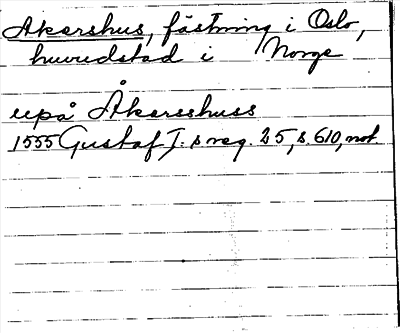 Akershus, fästning i Oslo,
huvudstad i Norge
upå Åkersshuss
1555 Gustaf I:s reg. 25, s. 610, not.